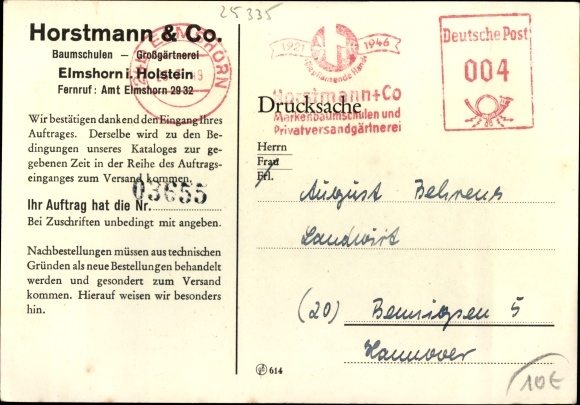 25335
Horstmann & Co.
Baumschulen — Großgärtnerei
Elmshorn i. Holstein
Fernruf: Amt Elmshorn 29 32
Wir bestätigen dankend den Eingang Ihres
Auftrages. Derselbe wird zu den Be-
dingungen unseres Kataloges zur ge-
gebenen Zeit in der Reihe des Auftrags-
einganges zum Versand kommen.
03655
Ihr Auftrag hat die Nr.
Bei Zuschriften unbedingt mit angeben.
Nachbestellungen müssen aus technischen
Gründen als neue Bestellungen behandelt
werden und gesondert zum Versand
kommen. Hierauf weisen wir besonders
hin.
ELMSHORN
1921 1946
Horstmann+Co
Markenbaumschulen und
Privatversandgärtnerei
Deutsche Post
004
Drucksache
Herrn
Frau
Frl.
August Behrens
Landwirt
(20) Bennigsen 5
Hannover
614
10E